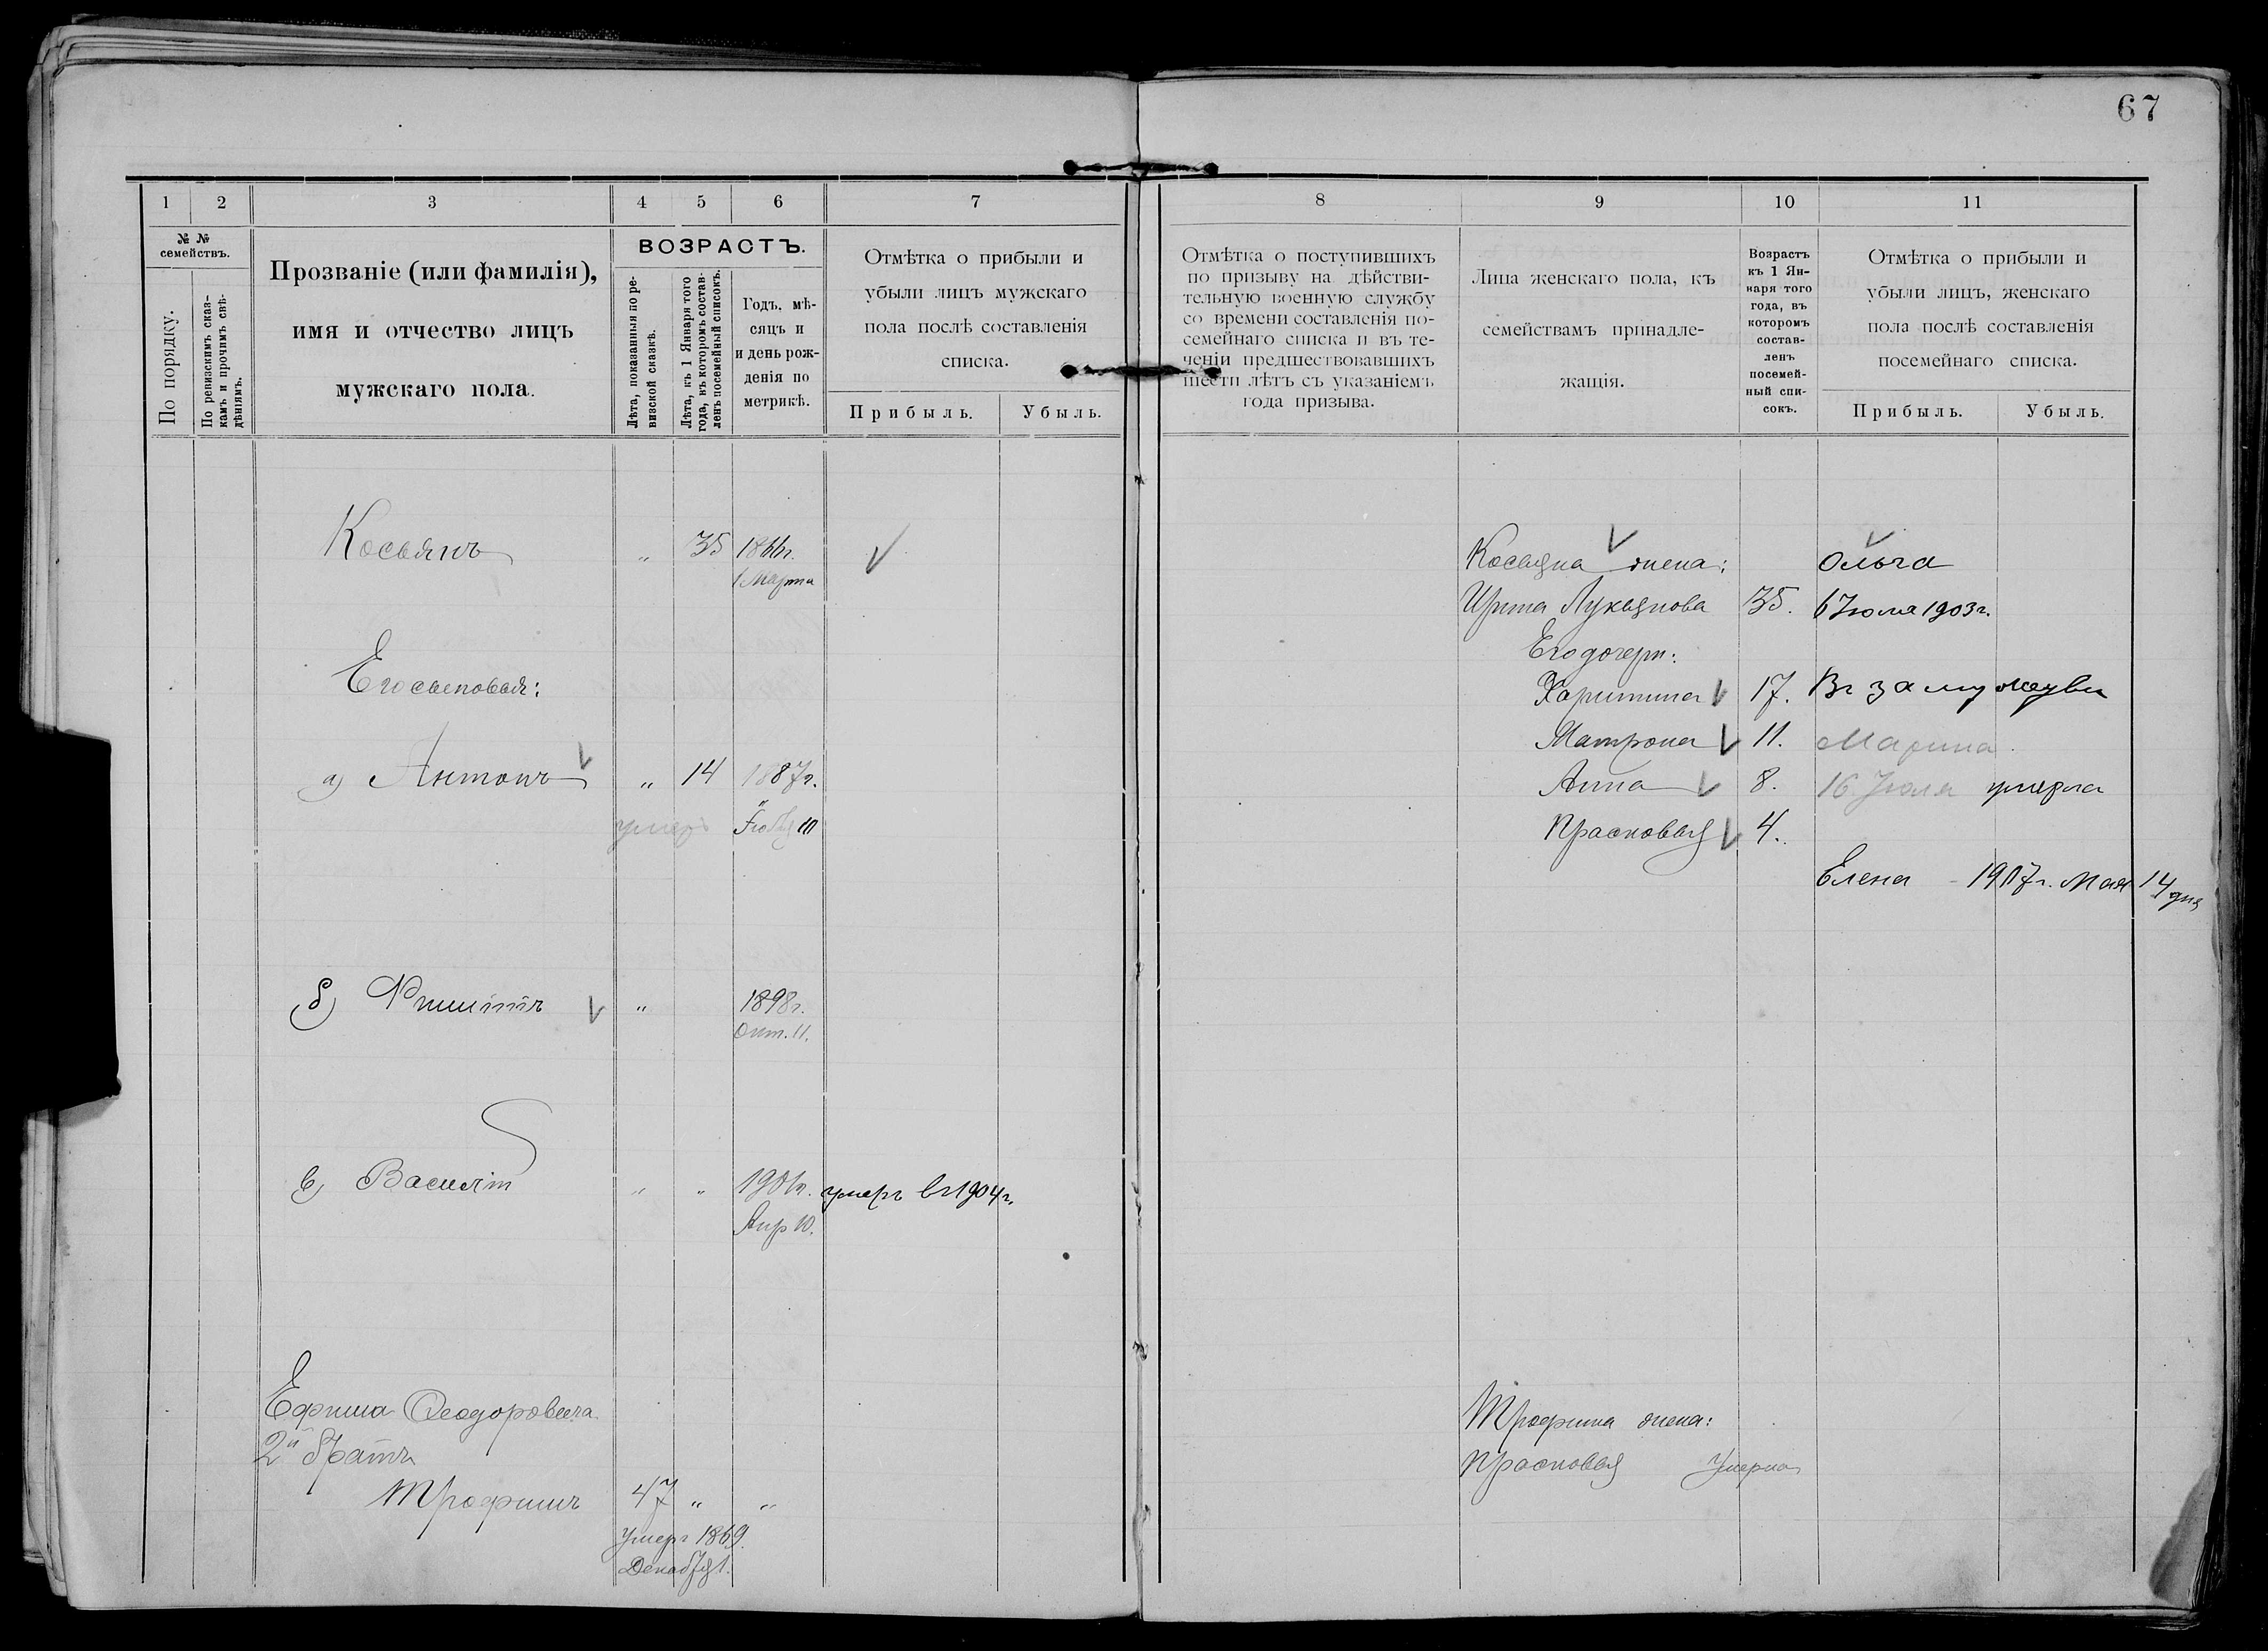 67
1 2 3 4 5 6 7
№ №
семействъ.
По порядку.
По ревизскимъ сказ-
камъ и прочимъ свѣ-
дѣніямъ.
Прозваніе (или фамилія),
имя и отчество лицъ
мужскаго пола.
ВОЗРАСТЪ.
Лѣта, показанныя по ре-
визской сказкѣ.
Лѣта, къ 1 Января того
года, въ которомъ состав-
ленъ посемейный списокъ.
Годъ, мѣ-
сяцъ и
и день рож-
денія по
метрикѣ.
Отмѣтка о прибыли и
убыли лицъ мужскаго
пола послѣ составленія
списка.
Прибыль. Убыль.
Косьянъ " 35 1866г.
1 Марта
Его сыновья:
а) Антонъ " 14 1887г.
умеръ 10
б) " 1898г.
Окт. 11.
в) Василій " " 1901г. умеръ въ 1904г.
Апр 10.
Ефима Феодоровича
2й братъ
Трофимъ 47 " "
умеръ 1869.
Декабря 1.
8 9 10 11
Отмѣтка о поступившихъ
по призыву на дѣйстви-
тельную военную службу
со времени составленія по-
семейнаго списка и въ те-
ченіи предшествовавшихъ
шести лѣтъ съ указаніемъ
года призыва.
Лица женскаго пола, къ
семействамъ принадле-
жащія.
Возрастъ
къ 1 Ян-
варя того
года, въ
которомъ
состав-
ленъ
посемей-
ный спи-
сокъ.
Отмѣтка о прибыли и
убыли лицъ, женскаго
пола послѣ составленія
посемейнаго списка.
Прибыль. Убыль.
Косьяна жена: Ольга
Ирина Лукьянова 35. 6 Іюля 1903г.
Его дочери:
Харитина 17. Въ замужеви
Матрона 11. Марина
Анна 8. 16 Іюля умерла
Прасковья 4.
Елена - 1917г. Мая 14 дня
Трофима жена:
Прасковья Умерла